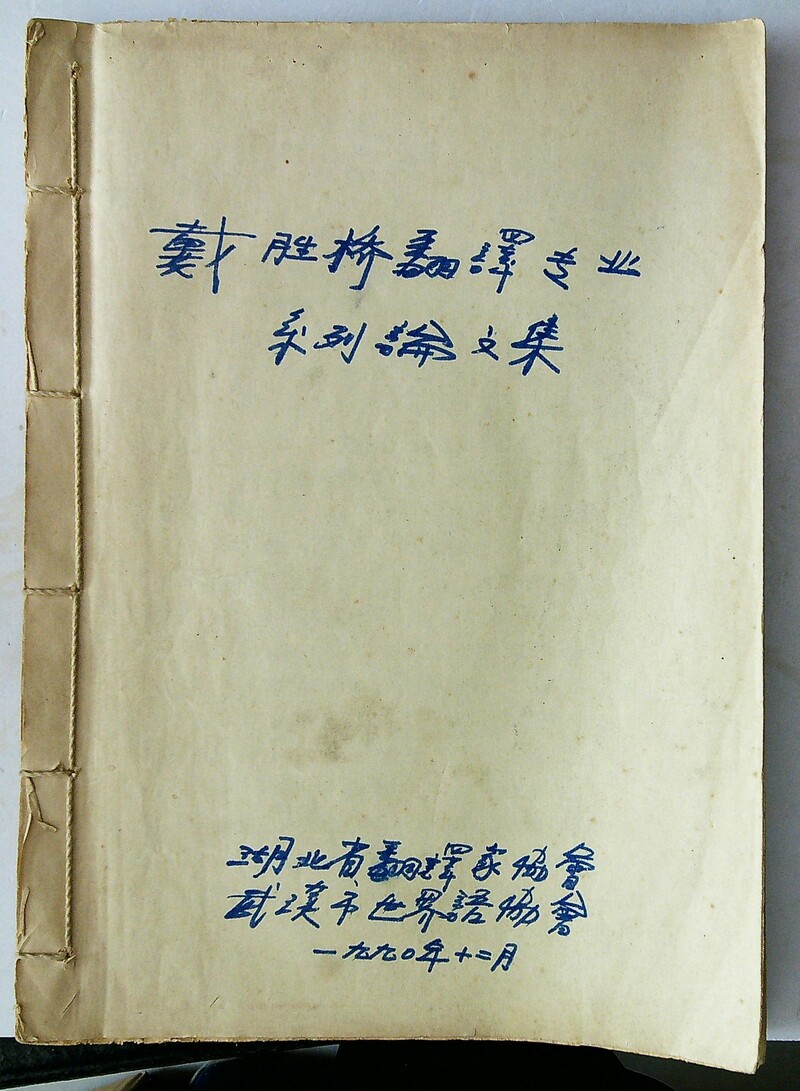 戴胜桥翻譯专业
系列論文集
湖北省翻譯家协會
武漢市世界語协會
一九九〇年十二月